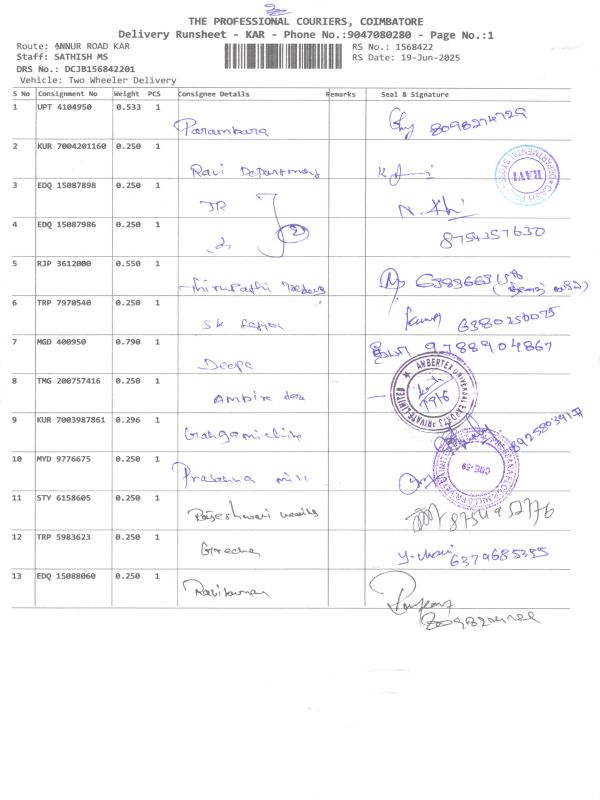 THE PROFESSIONAL COURIERS, COIMBATORE
Delivery Runsheet - KAR - Phone No.:9047080280 - Page No.:1
Route: ANNUR ROAD KAR
RS No.: 1568422
Staff: SATHISH MS
RS Date: 19-Jun-2025
DRS No.: DCJB156842201
Vehicle: Two Wheeler Delivery
S No Consignment No Weight PCS Consignee Details Remarks Seal & Signature
1 UPT 4104950 0.533 1
Parambara 8098274729
2 KUR 7004201160 0.250 1
Ravi Department
DEPARTMENTAL STORE RAVI CASH PAID
3 EDQ 15087898 0.250 1
JR
4 EDQ 15087986 0.250 1
2 8754357630
5 RJP 3612000 0.550 1
Thirupathi
6 TRP 7970540 0.250 1
SK 6380250075
7 MGD 400950 0.790 1
Deepa தீபா 9788904867
8 TMG 200757416 0.250 1
AMBERTEX UNIVERSAL PRIVATE LIMITED
9 KUR 7003987861 0.296 1
10 MYD 9776675 0.250 1
Prasanna mill
11 STY 6158605 0.250 1
Rajeshwari 8754952776
12 TRP 5983623 0.250 1
6379685395
13 EDQ 15088060 0.250 1
Ravikumar